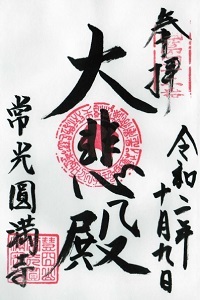 奉拝
令和二年
十月九日
大悲殿
常光圓満寺